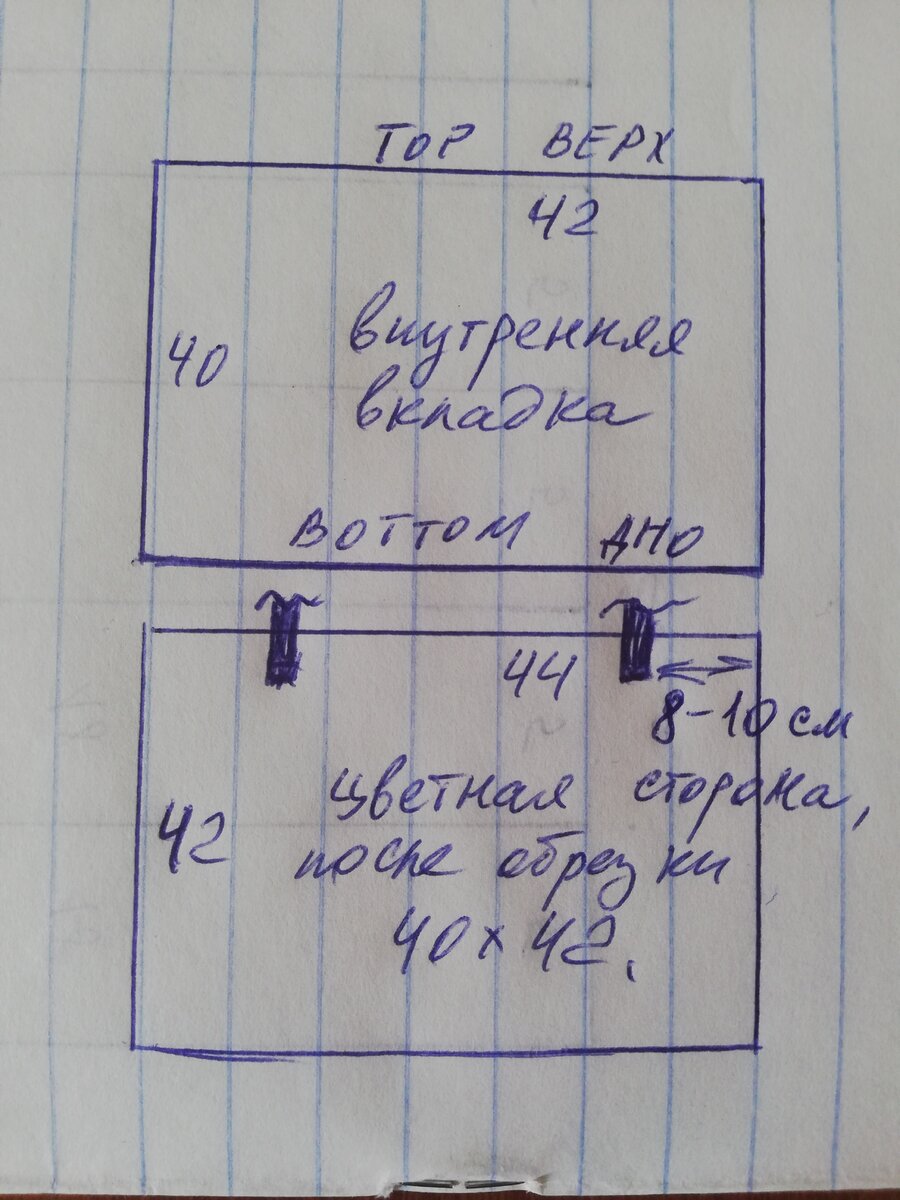 TOP ВЕРХ
42
40
внутренняя
вкладка
BOTTOM ДНО
44
8-10 см
42
цветная сторона,
после обрезки
40 x 42.